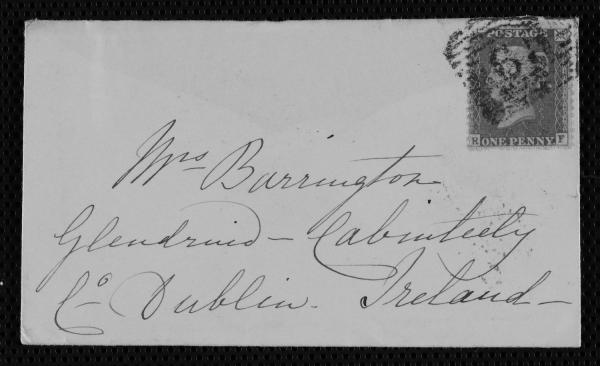 POSTAGE
R ONE PENNY F
Mrs Barrington
Glendruid - Cabinteely
Co Dublin. Ireland -